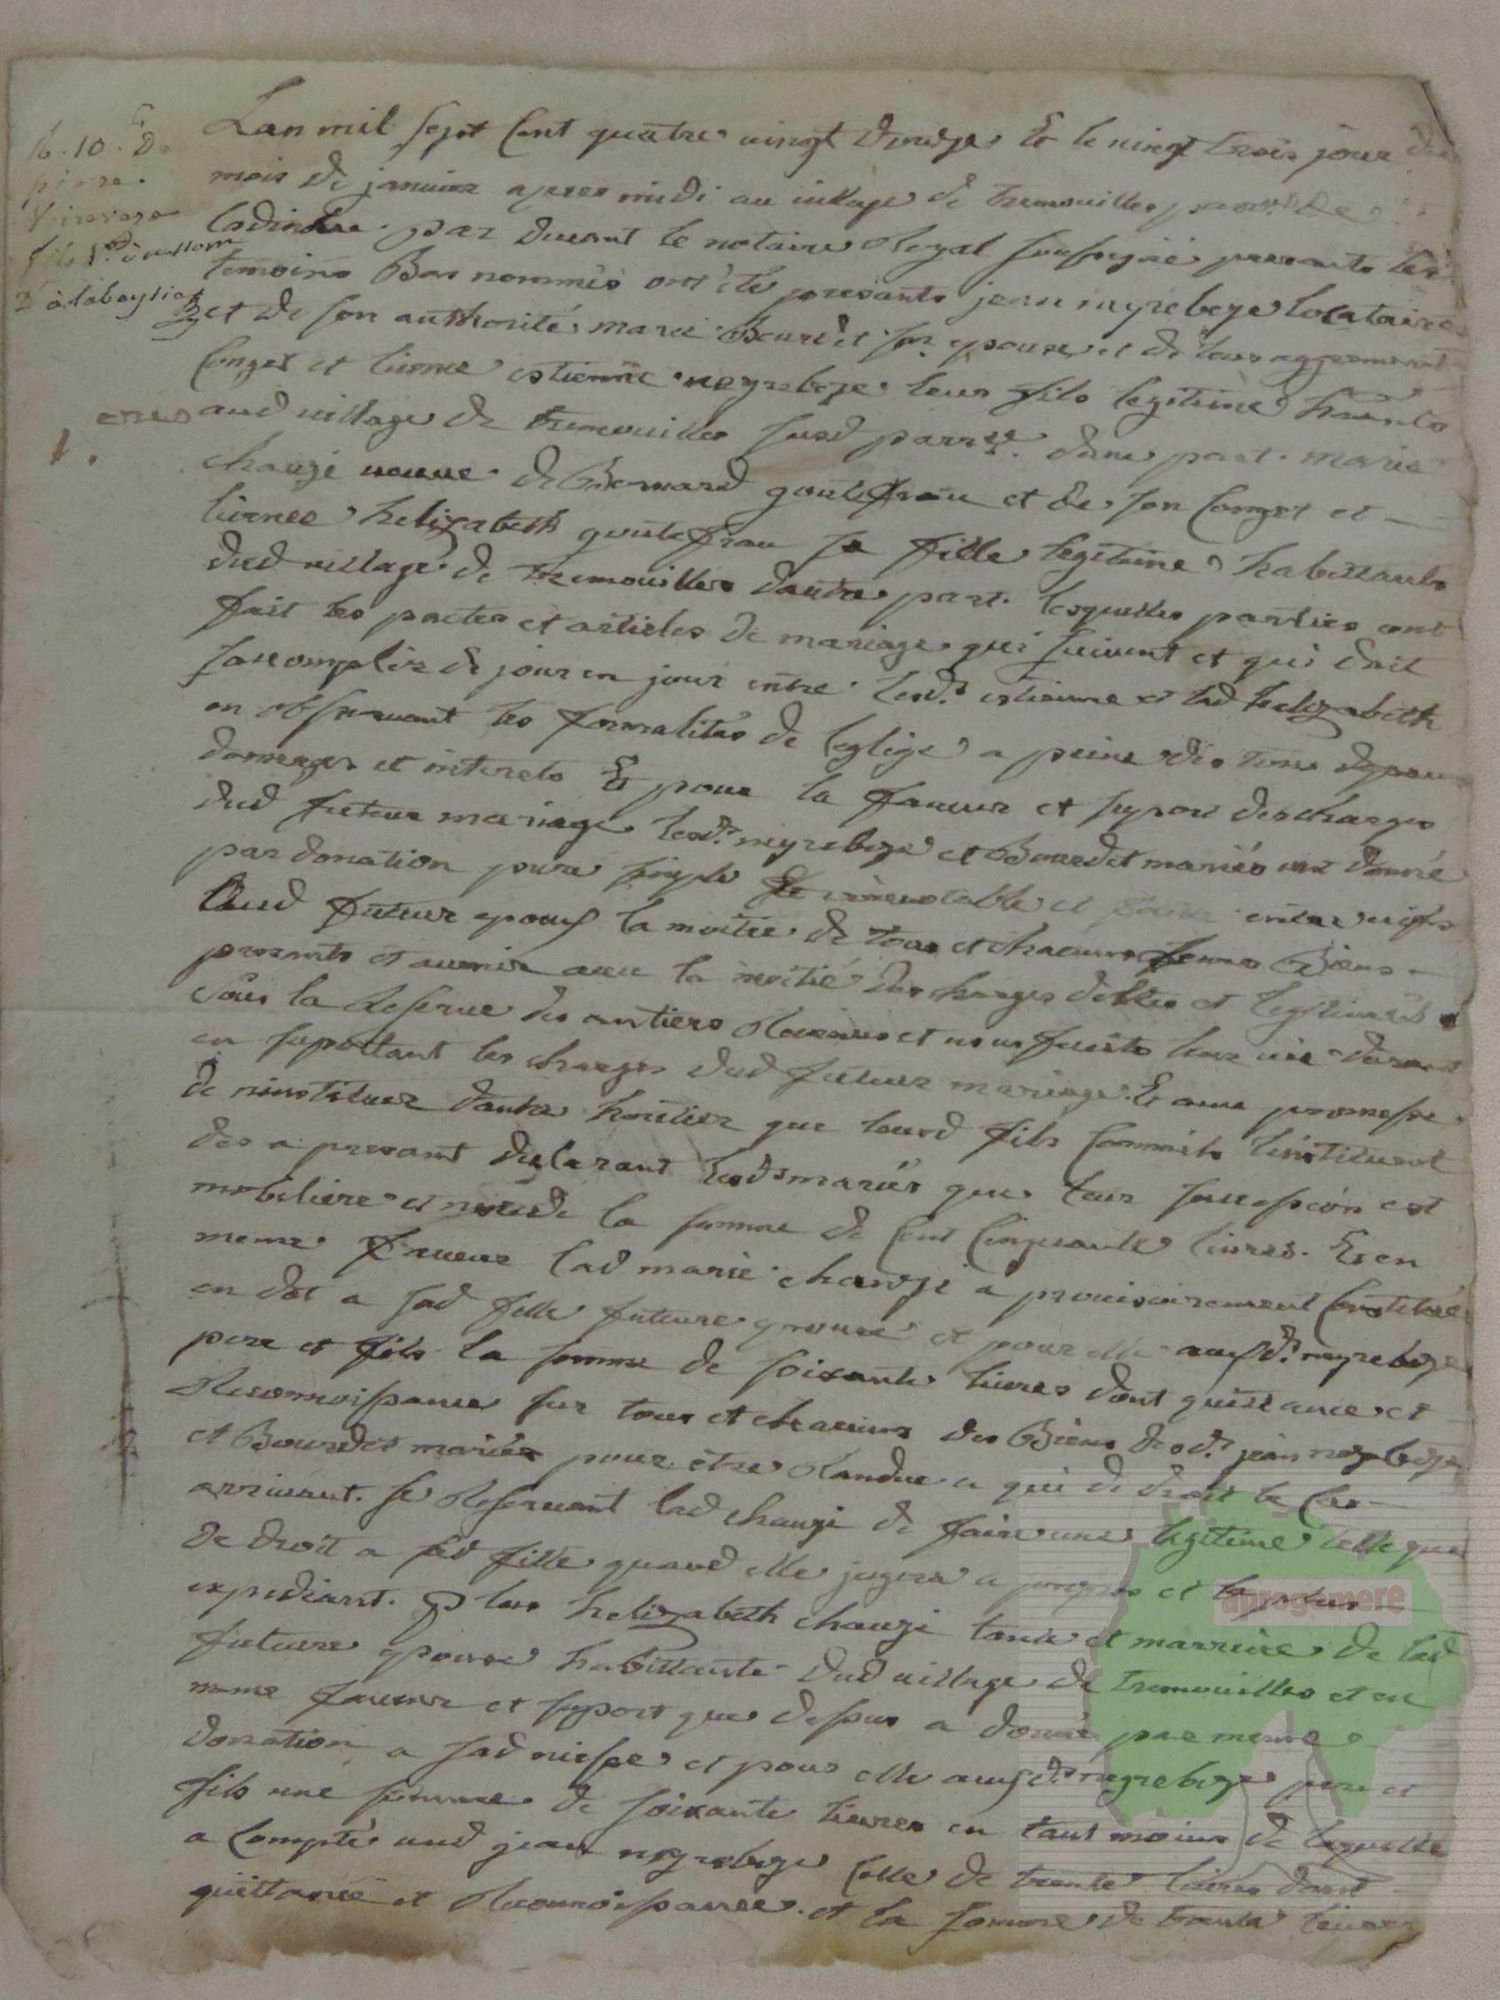 Lan mil sept Cent quatre vingt Et le vingt trois jour
mois de janvier apres midi au village de tremouilles
par devant le notaire Royal soussigné presants les
temoins Bas nommés ont été presants jean neyrebeze locataire
et de son authorité marie Bourdet son epouse et de leur agrement
Conget et licence estienne neyrebeze leur fils legitime
aud village de tremouilles susd parrse. dune part. marie
chauze veuve de Bernard goutefrau et de son Conget et
licence helizabeth goutefrau sa fille legitime habittants
dud village de tremouilles dautre part. lesquelles parties ont
fait les pactes et articles de mariage qui suivent et qui doit
saccomplir de jour en jour entre lesd. estienne et lad helizabeth
en observant les formalités de leglize a peine de tous depans
domerges et interets Et pour la faveur et suport des charges
dud futeur mariage lesd. neyrebeze et Bourdet mariés ont donné
par donation pure simple et entre vifs
aud futeur epoux la moitié de tous et chacuns Biens
presants et avenir avec la moitié des charges debtes et legitimes
sous la Reserve des antiers Revenus et usufruits leur vie durant
en suportant les charges dud futeur mariage. Et avec promesse
de ninstituer dautre heritier que leurd fils Comme ils linstituent
des a presant declarant lesds mariés que leur succession est
mobiliere et la somme de Cent Cinquante livres. Et en
meme faveur lad marie chauze a provisoirement Constitué
en dot a sad fille future epouse et pour elle auxd. neyrebeze
pere et fils la somme de soixante livres dont quittance et
Reconnoissance sur tous et chacuns des Biens desd. jean neyrebeze
et Bourdet mariés pour etre Randue a qui de droit le Cas
arrivant. se Reservant lad chauze de faire une legitime telle que
de droit a sad fille quand elle jugera a propos et le plus
expediant. Et lors helizabeth chauze tante et marreine de lad
future epouse habittante dud village de tremouilles et en
meme faveur et suport que dessus a donné par meme
donation a sad niesse et pour elle auxd. neyrebeze pere et
fils une somme de soixante livres en tant moins de laquelle
a Compté aud jean neyrebeze Celle de trente livres dont
quittance et Reconnoissance. et la somme de trente livres
aprogemere